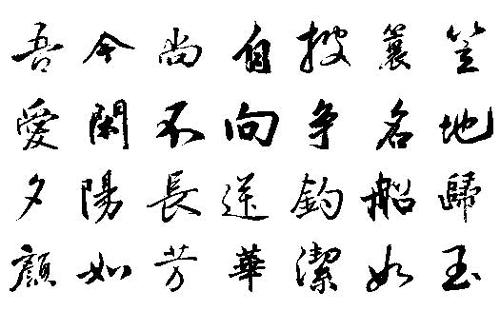 吾今尚自披簑笠
愛閑不向爭名地
夕陽長送釣船歸
顏如芳華潔如玉